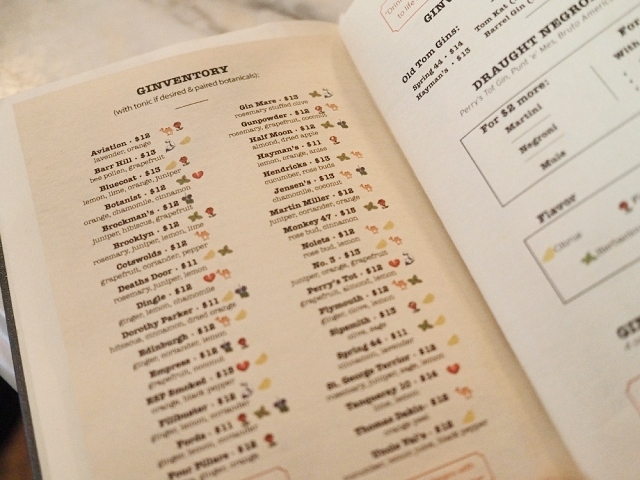 GINVENTORY
(with tonic if desired & paired botanicals):
Aviation · $12
lavender, orange
Barr Hill · $13
bee pollen, grapefruit
Bluecoat · $13
lemon, lime, orange, juniper
Botanist · $12
orange, chamomile, cinnamon
Brockman's · $12
juniper, hibiscus, grapefruit
Brooklyn · $12
rosemary, juniper, lemon, lime
Cotswolds · $12
grapefruit, coriander, pepper
Deaths Door · $11
rosemary, juniper, lemon
Dingle · $12
ginger, lemon, chamomile
Dorothy Parker · $11
hibiscus, cinnamon, dried orange
Edinburgh · $12
ginger, coriander, lemon
Empress · $12
grapefruit, coconut
ESP Smoked · $13
orange, black pepper
Filibuster · $12
ginger, lemon, coriander
Fords · $11
ginger, lemon, coriander
Four Pillars · $12
ginger, orange
Gin Mare · $13
rosemary stuffed olive
Gunpowder · $12
rosemary, grapefruit, coconut
Half Moon · $12
almond, dried apple
Hayman's · $11
lemon, orange, anise
Hendricks · $13
cucumber, rose buds
Jensen's · $13
chamomile, coconut
Martin Miller · $12
juniper, coriander, orange
Monkey 47 · $15
rose bud, cinnamon
Nolets · $12
rose bud, lemon
No. 3 · $13
juniper, orange, grapefruit
Perry's Tot · $12
grapefruit, almond, lemon
Plymouth · $12
ginger, clove, lemon
Sipsmith · $13
clove, sage
Spring 44 · $11
cinnamon, lavender
St. George Terrier · $13
rosemary, juniper, sage, lemon
Tanqueray 10 · $14
lime, lemon
Thomas Dakin · $12
orange peel
Uncle Val's · $12
cucumber, lemon, lime, black pepper
to life
Old Tom Gins:
Spring 44 · $14
Hayman's · $13
Tom Kat
Barrel Gin
DRAUGHT NEGRO
Perry's Tot Gin, Punt 'e' Mes, Bruto America
For $2 more:
Martini
Negroni
Mule
For
With
Flavor
Citrus